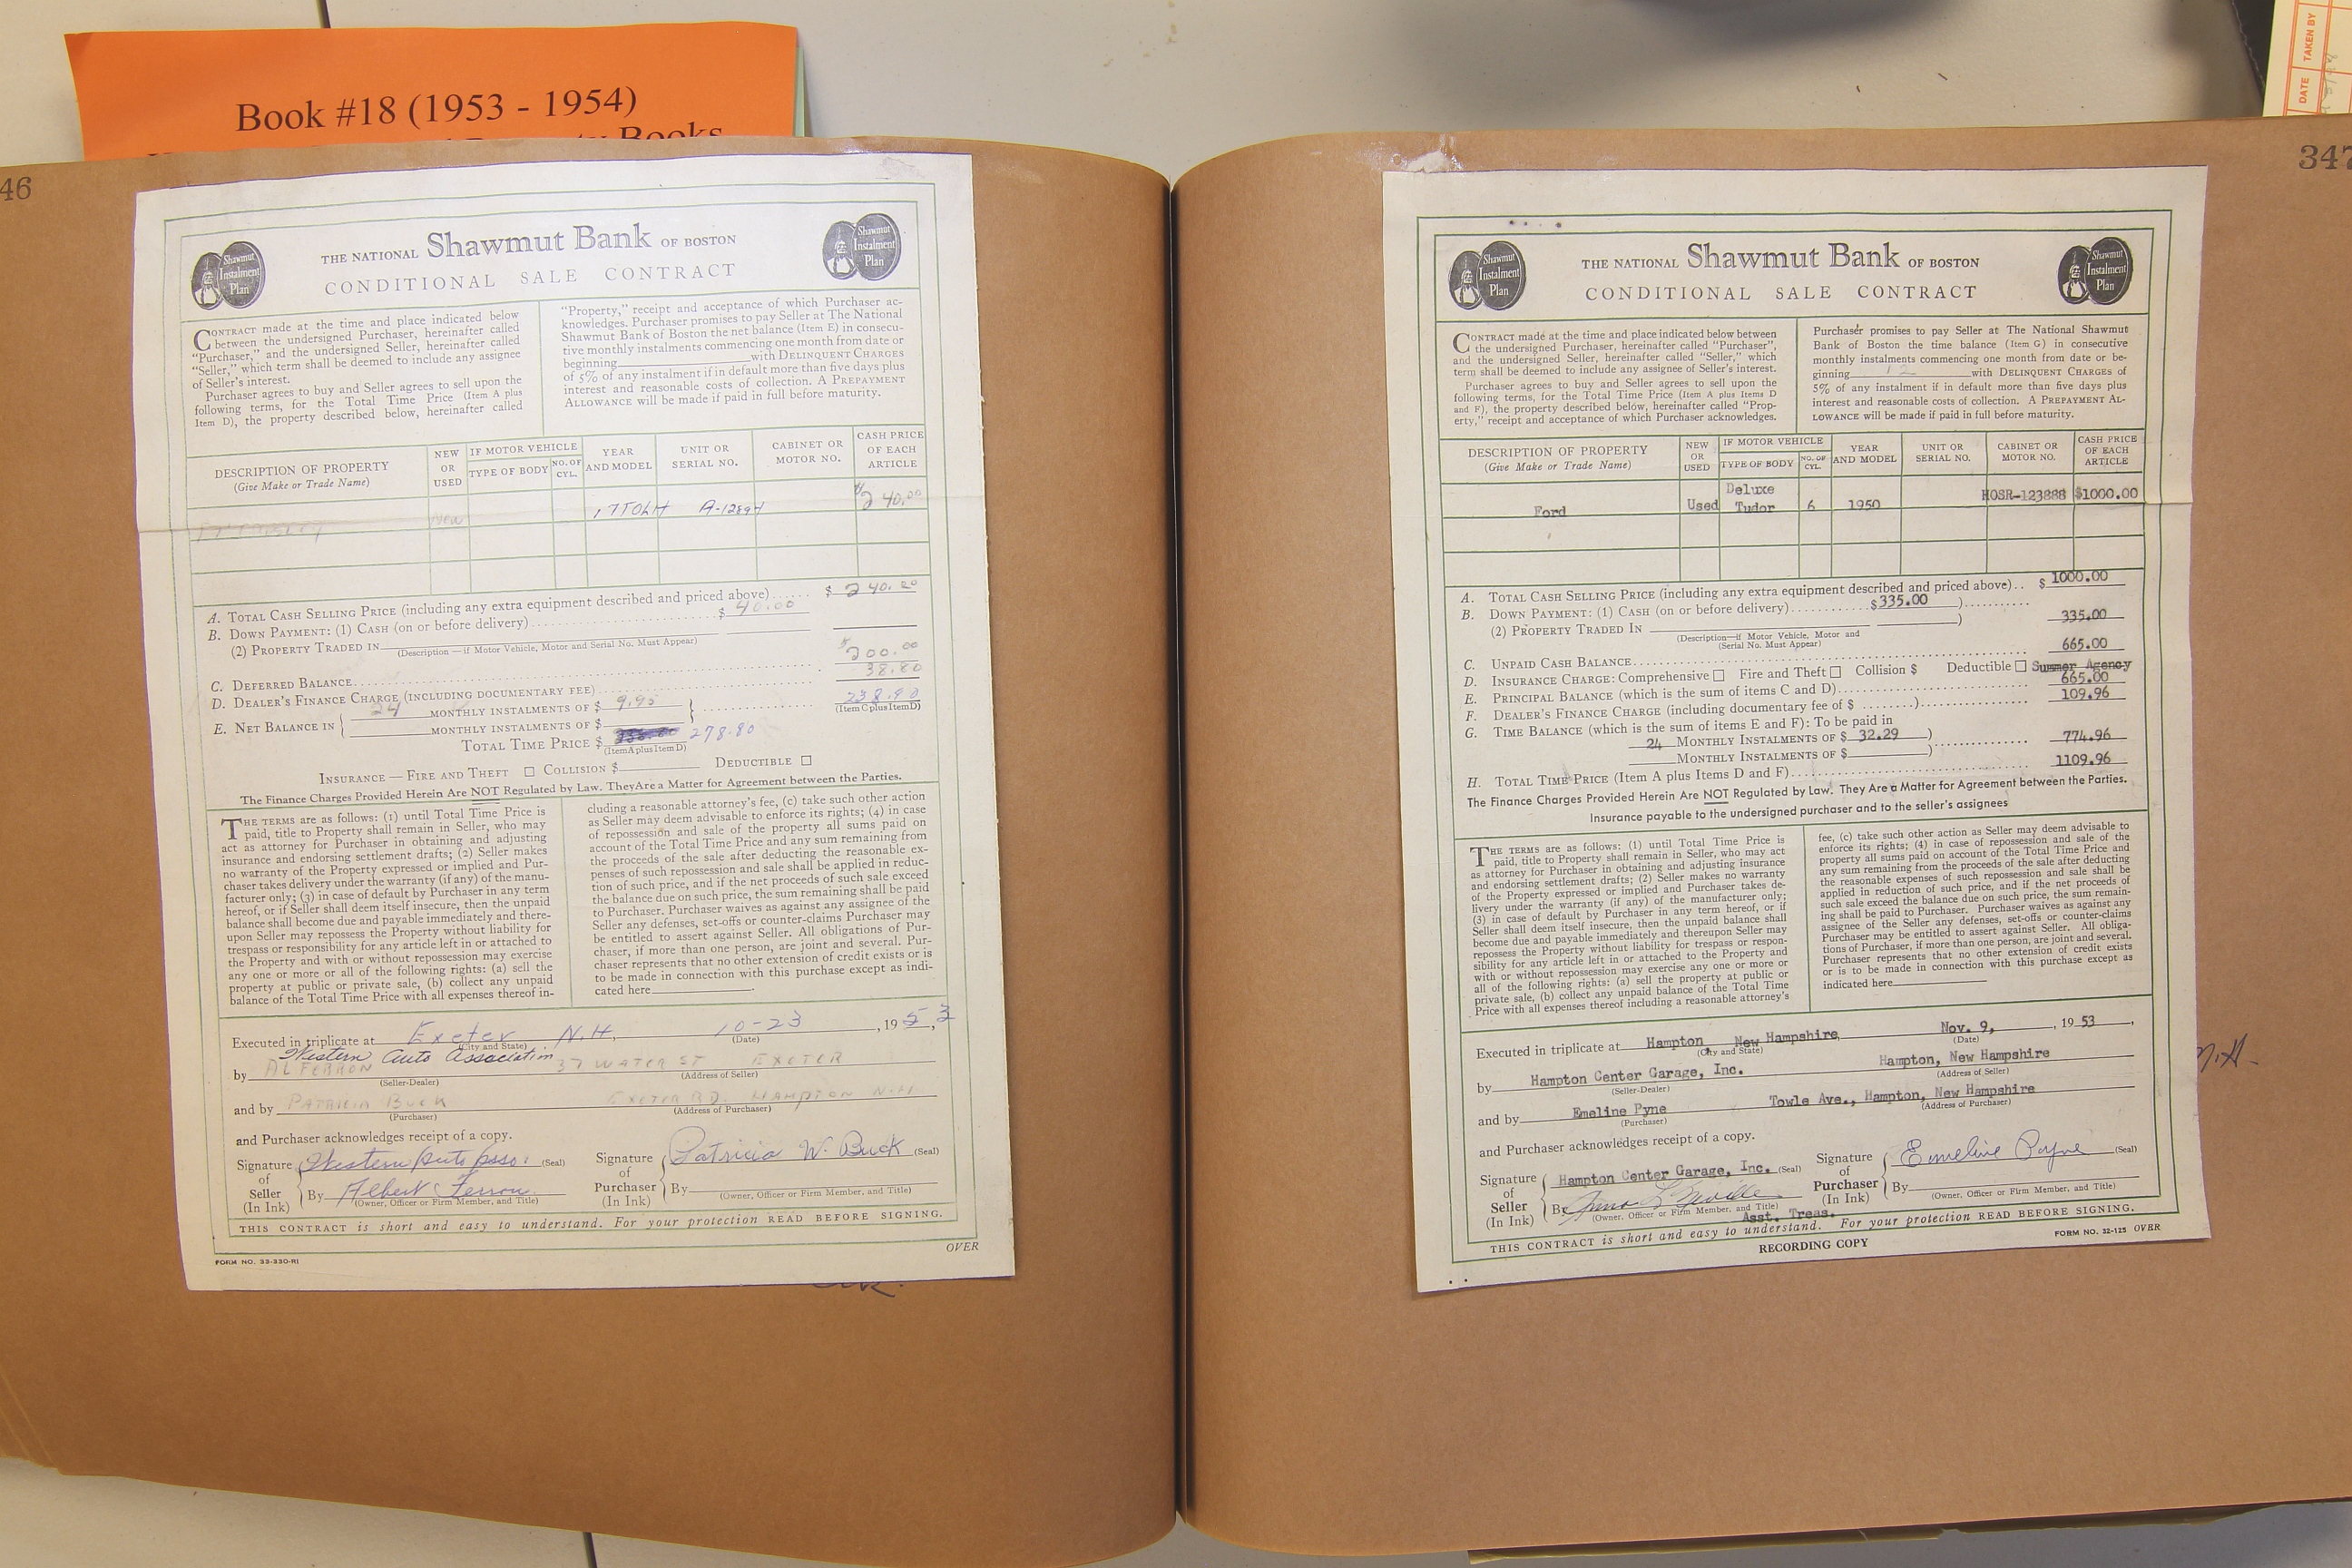 Book #18 (1953 - 1954)
Books
DATE
TAKEN BY
46
Shawmut
Instalment
Plan
THE NATIONAL Shawmut Bank OF BOSTON
CONDITIONAL SALE CONTRACT
Shawmut
Instalment
Plan
CONTRACT made at the time and place indicated below
between the undersigned Purchaser, hereinafter called
"Purchaser," and the undersigned Seller, hereinafter called
"Seller," which term shall be deemed to include any assignee
of Seller's interest.
Purchaser agrees to buy and Seller agrees to sell upon the
following terms, for the Total Time Price (Item A plus
Item D), the property described below, hereinafter called
"Property," receipt and acceptance of which Purchaser ac-
knowledges. Purchaser promises to pay Seller at The National
Shawmut Bank of Boston the net balance (Item E) in consecu-
tive monthly instalments commencing one month from date or
beginning with DELINQUENT CHARGES
of 5% of any instalment if in default more than five days plus
interest and reasonable costs of collection. A PREPAYMENT
ALLOWANCE will be made if paid in full before maturity.
DESCRIPTION OF PROPERTY
(Give Make or Trade Name)
NEW
OR
USED
IF MOTOR VEHICLE
TYPE OF BODY
NO. OF
CYL.
YEAR
AND MODEL
UNIT OR
SERIAL NO.
CABINET OR
MOTOR NO.
CASH PRICE
OF EACH
ARTICLE
New 17TOLH A-12894 $240.00
A. TOTAL CASH SELLING PRICE (including any extra equipment described and priced above)...... $ 240.00
B. DOWN PAYMENT: (1) CASH (on or before delivery)........ $ 40.00
(2) PROPERTY TRADED IN
(Description—if Motor Vehicle, Motor and Serial No. Must Appear)
C. DEFERRED BALANCE........ $200.00
D. DEALER'S FINANCE CHARGE (INCLUDING DOCUMENTARY FEE)........ 38.80
E. NET BALANCE IN { 24 MONTHLY INSTALMENTS OF $ 9.95 } ........ 238.80
MONTHLY INSTALMENTS OF $
(Item C plus Item D)
TOTAL TIME PRICE $ 278.80
(Item A plus Item D)
INSURANCE — FIRE AND THEFT □ COLLISION $ DEDUCTIBLE □
The Finance Charges Provided Herein Are NOT Regulated by Law. They Are a Matter for Agreement between the Parties.
THE TERMS are as follows: (1) until Total Time Price is
paid, title to Property shall remain in Seller, who may
act as attorney for Purchaser in obtaining and adjusting
insurance and endorsing settlement drafts; (2) Seller makes
no warranty of the Property expressed or implied and Pur-
chaser takes delivery under the warranty (if any) of the manu-
facturer only; (3) in case of default by Purchaser in any term
hereof, or if Seller shall deem itself insecure, then the unpaid
balance shall become due and payable immediately and there-
upon Seller may repossess the Property without liability for
trespass or responsibility for any article left in or attached to
the Property and with or without repossession may exercise
any one or more or all of the following rights: (a) sell the
property at public or private sale, (b) collect any unpaid
balance of the Total Time Price with all expenses thereof in-
cluding a reasonable attorney's fee, (c) take such other action
as Seller may deem advisable to enforce its rights; (4) in case
of repossession and sale of the property all sums paid on
account of the Total Time Price and any sum remaining from
the proceeds of the sale after deducting the reasonable ex-
penses of such repossession and sale shall be applied in reduc-
tion of such price, and if the net proceeds of such sale exceed
the balance due on such price, the sum remaining shall be paid
to Purchaser. Purchaser waives as against any assignee of the
Seller any defenses, set-offs or counter-claims Purchaser may
be entitled to assert against Seller. All obligations of Pur-
chaser, if more than one person, are joint and several. Pur-
chaser represents that no other extension of credit exists or is
to be made in connection with this purchase except as indi-
cated here .
Executed in triplicate at Exeter N.H. 10-23, 1953,
(City and State) (Date)
Western Auto Association
by AL FERRON 37 WATER ST EXETER
(Seller-Dealer) (Address of Seller)
and by PATRICIA BUCK EXETER RD. HAMPTON N.H
(Purchaser) (Address of Purchaser)
and Purchaser acknowledges receipt of a copy.
Signature of Seller (In Ink) Western Auto Asso. (Seal)
By Albert Ferron
(Owner, Officer or Firm Member, and Title)
Signature of Purchaser (In Ink) Patricia W. Buck (Seal)
By
(Owner, Officer or Firm Member, and Title)
THIS CONTRACT is short and easy to understand. For your protection READ BEFORE SIGNING.
OVER
FORM NO. 33-330-RI
347
Shawmut
Instalment
Plan
THE NATIONAL Shawmut Bank OF BOSTON
CONDITIONAL SALE CONTRACT
Shawmut
Instalment
Plan
CONTRACT made at the time and place indicated below between
the undersigned Purchaser, hereinafter called "Purchaser",
and the undersigned Seller, hereinafter called "Seller," which
term shall be deemed to include any assignee of Seller's interest.
Purchaser agrees to buy and Seller agrees to sell upon the
following terms, for the Total Time Price (Item A plus Items D
and F), the property described below, hereinafter called "Prop-
erty," receipt and acceptance of which Purchaser acknowledges.
Purchaser promises to pay Seller at The National Shawmut
Bank of Boston the time balance (Item G) in consecutive
monthly instalments commencing one month from date or be-
ginning 12 with DELINQUENT CHARGES of
5% of any instalment if in default more than five days plus
interest and reasonable costs of collection. A PREPAYMENT AL-
LOWANCE will be made if paid in full before maturity.
DESCRIPTION OF PROPERTY
(Give Make or Trade Name)
NEW
OR
USED
IF MOTOR VEHICLE
TYPE OF BODY
NO. OF
CYL.
YEAR
AND MODEL
UNIT OR
SERIAL NO.
CABINET OR
MOTOR NO.
CASH PRICE
OF EACH
ARTICLE
Ford Used Deluxe Tudor 6 1950 HOSR-123888 $1000.00
A. TOTAL CASH SELLING PRICE (including any extra equipment described and priced above).. $ 1000.00
B. DOWN PAYMENT: (1) CASH (on or before delivery)........ $335.00 )........
(2) PROPERTY TRADED IN ) 335.00
(Description—if Motor Vehicle, Motor and
(Serial No. Must Appear)
C. UNPAID CASH BALANCE........ 665.00
D. INSURANCE CHARGE: Comprehensive □ Fire and Theft □ Collision $ Deductible □ Summer Agency
E. PRINCIPAL BALANCE (which is the sum of items C and D)........ 665.00
F. DEALER'S FINANCE CHARGE (including documentary fee of $ ........)........ 109.96
G. TIME BALANCE (which is the sum of items E and F): To be paid in
24 MONTHLY INSTALMENTS OF $ 32.29 )
MONTHLY INSTALMENTS OF $ )........ 774.96
H. TOTAL TIME PRICE (Item A plus Items D and F)........ 1109.96
The Finance Charges Provided Herein Are NOT Regulated by Law. They Are a Matter for Agreement between the Parties.
Insurance payable to the undersigned purchaser and to the seller's assignees
THE TERMS are as follows: (1) until Total Time Price is
paid, title to Property shall remain in Seller, who may act
as attorney for Purchaser in obtaining and adjusting insurance
and endorsing settlement drafts; (2) Seller makes no warranty
of the Property expressed or implied and Purchaser takes de-
livery under the warranty (if any) of the manufacturer only;
(3) in case of default by Purchaser in any term hereof, or if
Seller shall deem itself insecure, then the unpaid balance shall
become due and payable immediately and thereupon Seller may
repossess the Property without liability for trespass or respon-
sibility for any article left in or attached to the Property and
with or without repossession may exercise any one or more or
all of the following rights: (a) sell the property at public or
private sale, (b) collect any unpaid balance of the Total Time
Price with all expenses thereof including a reasonable attorney's
fee, (c) take such other action as Seller may deem advisable to
enforce its rights; (4) in case of repossession and sale of the
property all sums paid on account of the Total Time Price and
any sum remaining from the proceeds of the sale after deducting
the reasonable expenses of such repossession and sale shall be
applied in reduction of such price, and if the net proceeds of
such sale exceed the balance due on such price, the sum remain-
ing shall be paid to Purchaser. Purchaser waives as against any
assignee of the Seller any defenses, set-offs or counter-claims
Purchaser may be entitled to assert against Seller. All obliga-
tions of Purchaser, if more than one person, are joint and several.
Purchaser represents that no other extension of credit exists
or is to be made in connection with this purchase except as
indicated here
Executed in triplicate at Hampton, New Hampshire, Nov. 9, , 19 53 ,
(City and State) (Date)
by Hampton Center Garage, Inc. Hampton, New Hampshire
(Seller-Dealer) (Address of Seller)
and by Emeline Pyne Towle Ave., Hampton, New Hampshire
(Purchaser) (Address of Purchaser)
and Purchaser acknowledges receipt of a copy.
Signature of Seller (In Ink) Hampton Center Garage, Inc. (Seal)
By
(Owner, Officer or Firm Member, and Title)
Asst. Treas.
Signature of Purchaser (In Ink) Emeline Payne (Seal)
By
(Owner, Officer or Firm Member, and Title)
THIS CONTRACT is short and easy to understand. For your protection READ BEFORE SIGNING.
RECORDING COPY
FORM NO. 32-125 OVER
N.H.